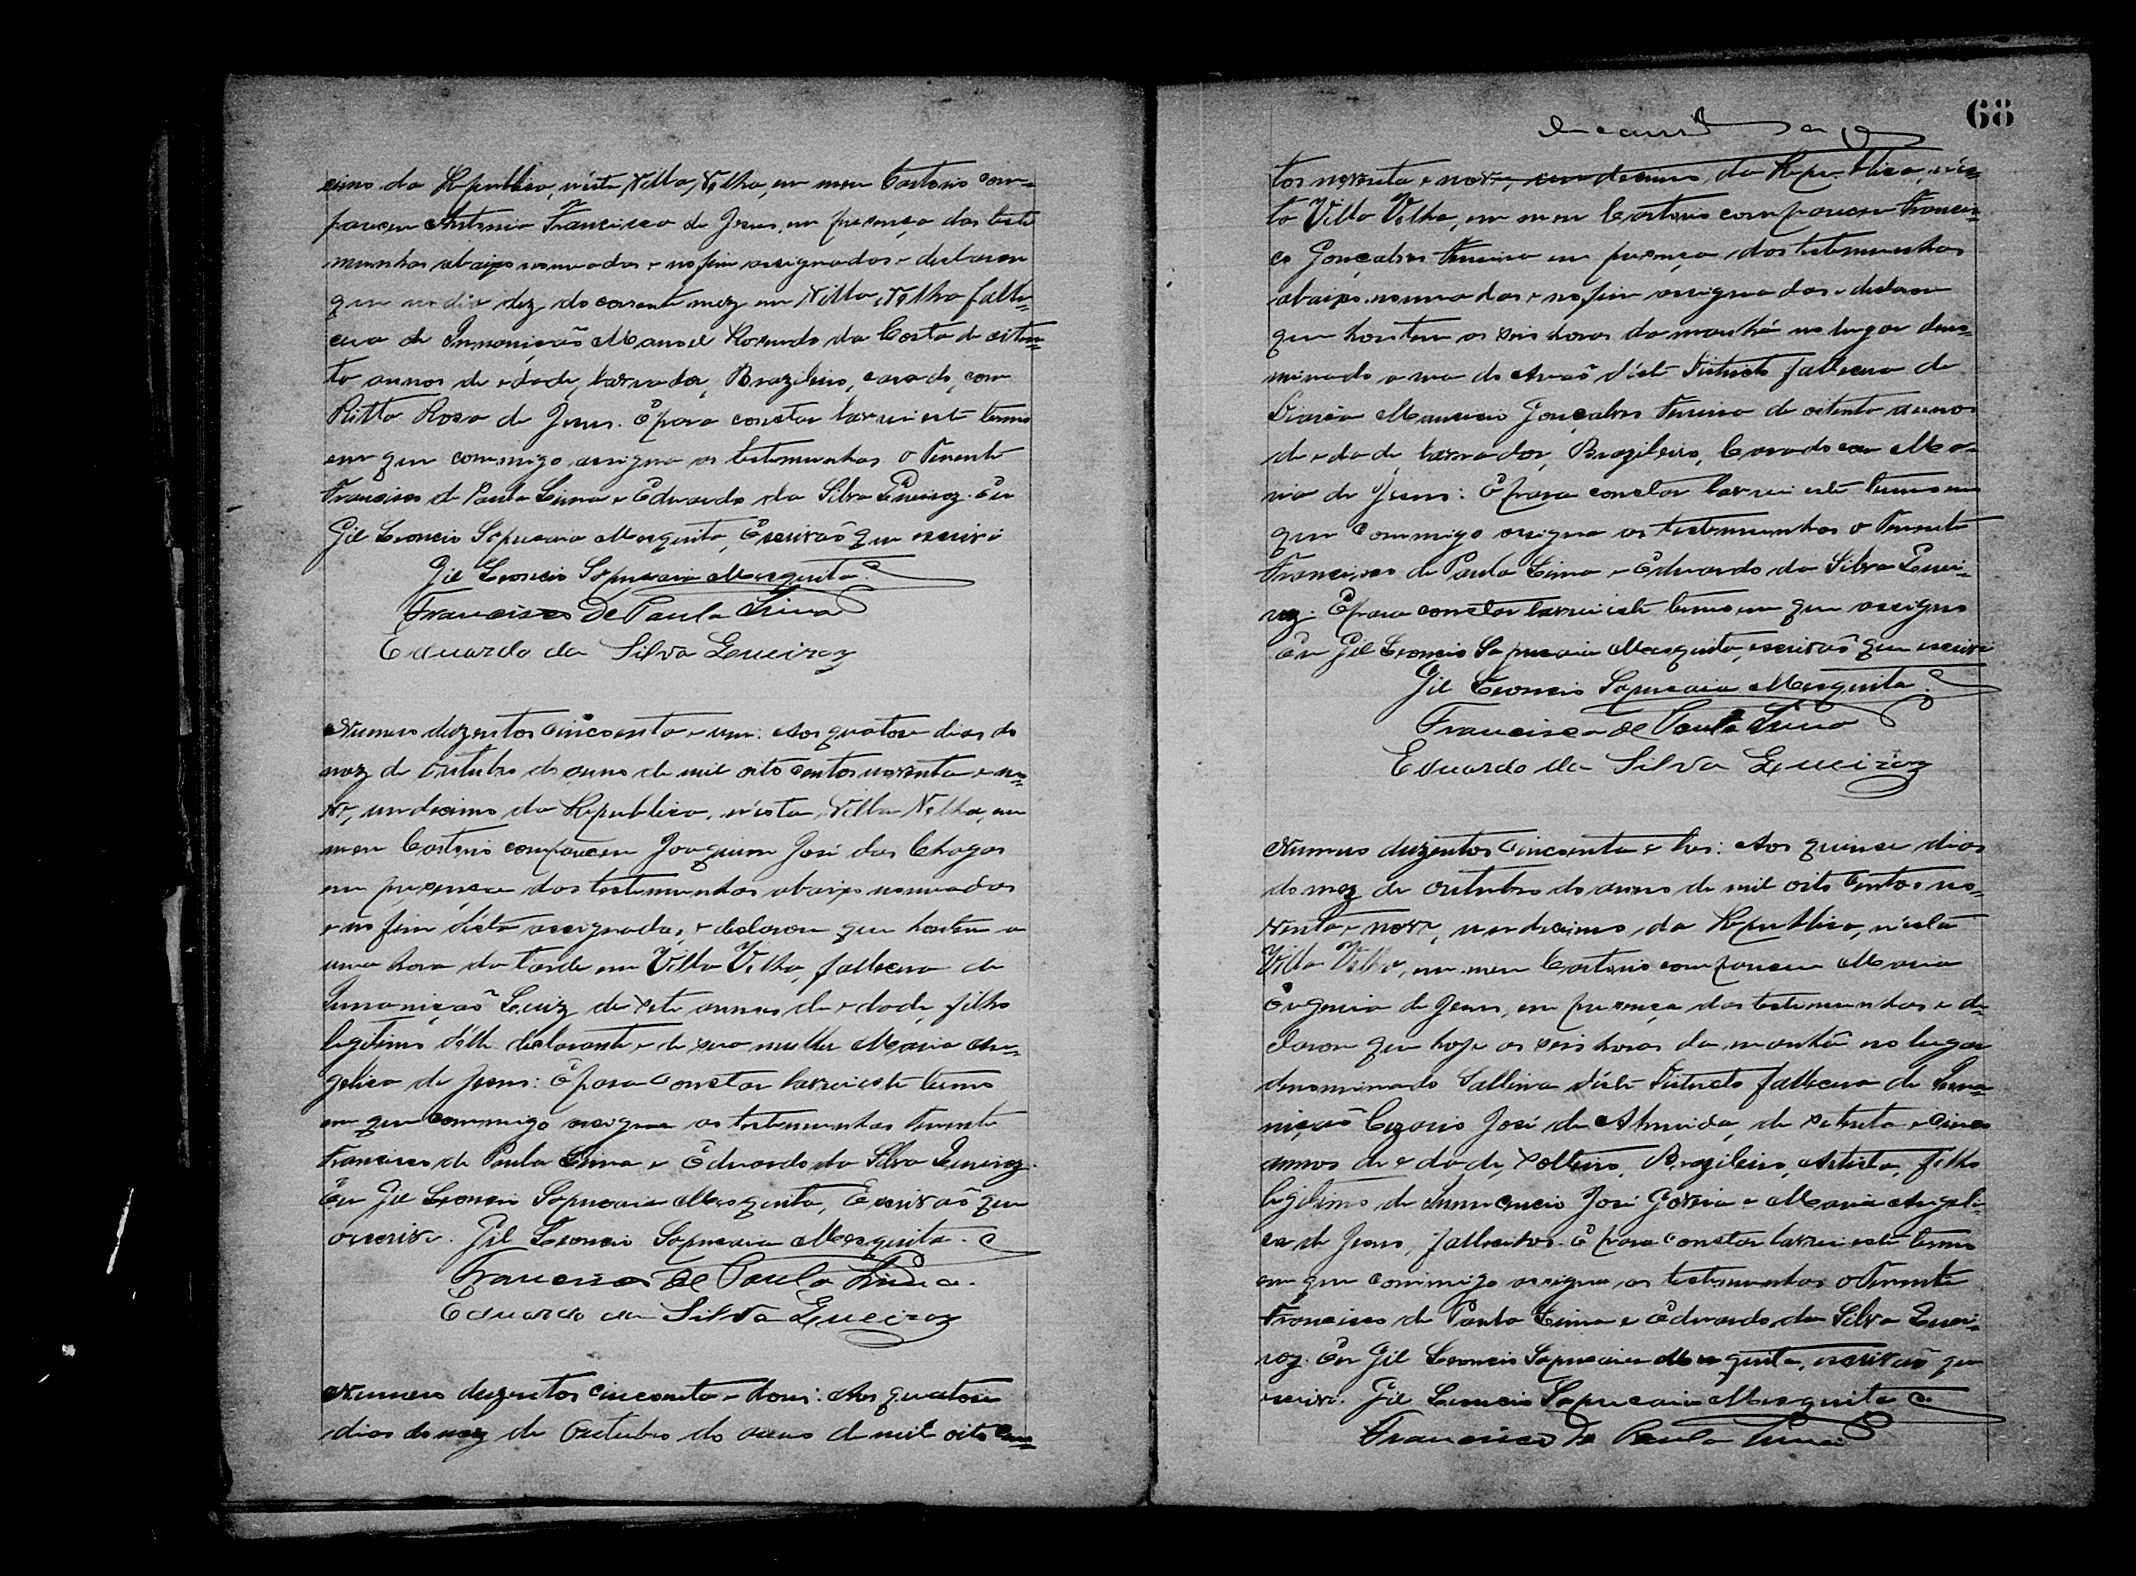 cimo da Republica, n'ésta Villa Velha, em meu Cartorio com-
pareceu Antonio Francisco de Jesus, em presença das teste
munhas abaixo nomeadas e no fim assignadas e declarou
que no dia dez do corrente mez em Villa Velha falle-
ceu de Innanição Manoel Rosendo da Costa de oiten-
ta annos de edade, lavrador, Brazileiro, casado, com
Ritta Rosa de Jesus. E para constar lavrei este termo
em que commigo assigna as testemunhas o Tenente
Francisco de Paula Lima e Eduardo da Silva Queiroz. Eu
Gil Leoncio Sapucaia Mesquita, Escrivão que escrivi
Gil Leoncio Sapucaia Mesquita.
Francisco de Paula Lima
Eduardo da Silva Queiroz
Numero duzentos cincoenta e um: Aos quatorse dias do
mez de Outubro do anno de mil oito centos noventa e no-
ve, undecimo da Republica, n'ésta Villa Velha, em
meu Cartorio compareceu Joaquim José das Chagas
em presença das testemunhas abaixo nomeadas
e no fim désta assignadas, e declarou que hontem a
uma hora da tarde em Villa Velha, falleceu de
Innanição Luiz de sete annos de edade, filho
legitimo délle declarante e de sua mulher Maria An-
gelica de Jesus: E para constar lavrei este termo
em que commigo assigna as testemunhas tenente
Francisco de Paula Lima e Eduardo da Silva Queiroz.
Eu Gil Leoncio Sapucaia Mesquita, Escrivão que
o escrivi. Gil Leoncio Sapucaia Mesquita.
Francisco de Paula Lima.
Eduardo da Silva Queiroz
Numero duzentos cincoenta e dous: Aos quatorse
dias do mez de Outubro do anno de mil oito cen-
68
tos noventa e nove, undecimo, da Republica, n'és-
ta Villa Velha, em meu Cartorio compareceu Francis-
co Gonçalves Ferreira em presença das testemunhas
abaixo nomeadas e no fim assignadas e declarou
que hontem as seis horas da manhã no lugar deno-
minado d'éste Districto falleceu de
Gonçalves Ferreira de oitenta annos
de edade, lavrador, Brazileiro, Casado com Ma-
ria de Jesus: E para constar lavrei este termo em
que commigo assigna as testemunhas o Tenente
Francisco de Paula Lima e Eduardo da Silva Quei-
roz. E para constar lavrei este termo em que assigno
Eu Gil Leoncio Sapucaia Mesquita, escrivão que escrivi
Gil Leoncio Sapucaia Mesquita.
Francisco de Paula Lima
Eduardo da Silva Queiroz
Numero duzentos cincoenta e tres: Aos quinse dias
do mez de Outubro do anno de mil oito centos no-
venta e nove, undecimo, da Republica, n'ésta
Villa Velha, em meu Cartorio compareceu Maria
Eugencia de Jesus, em presença das testemunhas e de-
clarou que hoje as seis horas da manhã no lugar
denominado Sallina d'éste Districto falleceu de Inna-
nição Cezario José de Almeida, de setenta e cinco
annos de edade, solteiro, Brazileiro, Artista, filho
legitimo de Innocencio José Garcia e Maria Angeli-
ca de Jesus, fallecidos. E para constar lavrei este termo
em que commigo assigna as testemunhas o Tenente
Francisco de Paula Lima e Eduardo da Silva Quei-
roz. Eu Gil Leoncio Sapucaia Mesquita, escrivão que
escrivi. Gil Leoncio Sapucaia Mesquita
Francisco de Paula Lima